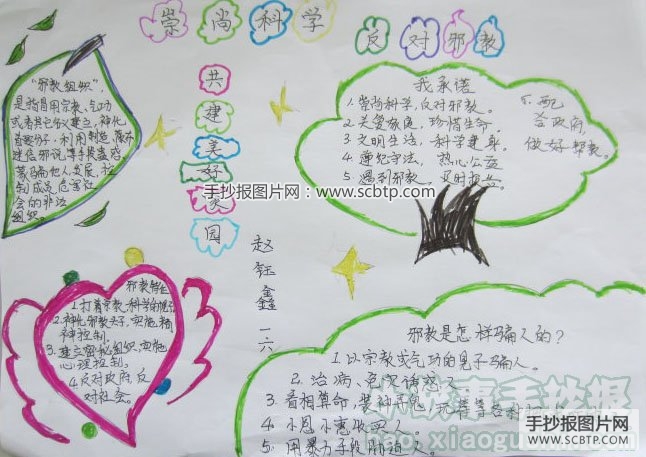 崇尚科学
反对邪教
共建美好家园
赵钰鑫 一六
"邪教组织",
是指冒用宗教、气功
或者其它名义建立,神化
首要分子,利用制造、散布
迷信邪说等手段蛊惑、
蒙骗他人,发展、控
制成员,危害社
会的非法
组织。
我承诺
1. 崇尚科学,反对邪教。
2. 关爱家庭,珍惜生命。
3. 文明生活,科学健身。
4. 遵纪守法,热心公益
5. 遇到邪教,及时报告。
政府,
做好帮教。
手抄报图片网:www.scbtp.com
邪教特征
1. 打着宗教、科学的幌子
2. 神化邪教头子,实施精
神控制。
3. 建立秘密组织,实施
心理控制。
4. 反对政府,反
对社会。
邪教是怎样骗人的?
1. 以宗教或气功的幌子骗人。
2. 治病、免灾诱惑人
3. 看相算命,装神弄鬼
4. 小恩小惠收买人。
5. 用暴力手段
手抄报图片网
WWW.SCBTP.COM